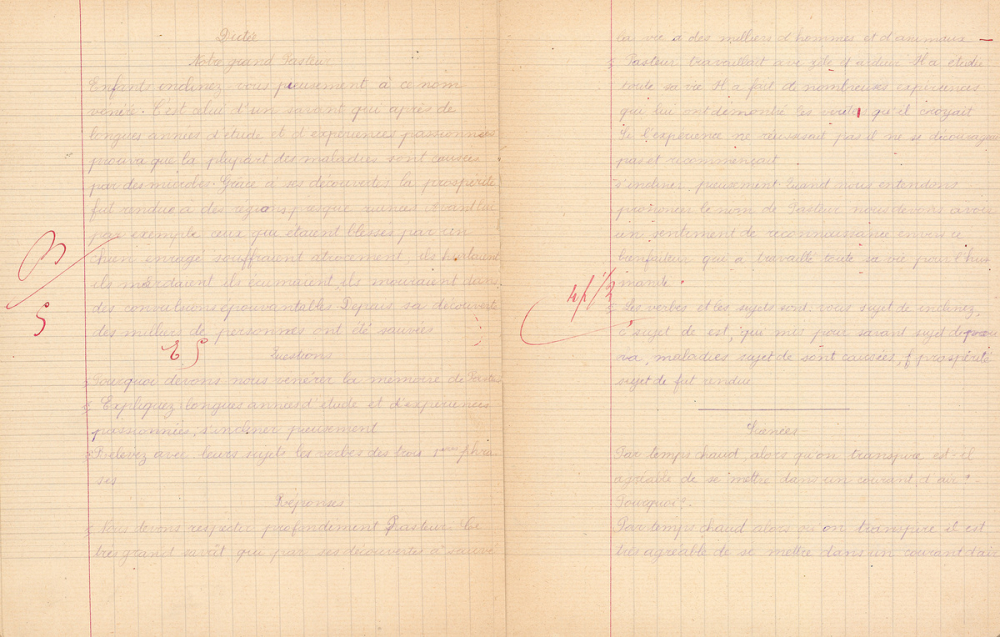 Dictée
Notre grand Pasteur
Enfants inclinez-vous pieusement à ce nom
vénéré. C'est celui d'un savant qui après de
longues années d'étude et d'expériences passionnées
prouva que la plupart des maladies sont causées
par des microbes. Grâce à ses découvertes la prospérité
fut rendue à des régions presque ruinées. Avant lui
par exemple ceux qui étaient blessés par un
chien enragé souffraient atrocement, ils hurlaient
ils mordaient ils écumaient, ils mouraient dans
des convulsions épouvantables. Depuis sa découverte
des milliers de personnes ont été sauvés
Questions
Pourquoi devons nous vénérer la mémoire de Pasteur
Expliquez longues années d'étude et d'expériences
passionnées, s'incliner pieusement
Relevez avec leurs sujets les verbes des trois 1ères phra-
ses
Réponses
Nous devons respecter profondément Pasteur. Ce
très grand qui par ses découvertes a sauvé
la vie à des milliers d'hommes et d'animaux
Pasteur travaillait avec zèle et Il a étudié
toute sa vie Il a fait de nombreuses expériences
qui lui ont démontré qu'il croyait
Si l'expérience ne réussissait pas il ne se décourageait
pas et recommençait
s'incliner pieusement Quand nous entendons
prononcer le nom de Pasteur nous devons avoir
un sentiment de reconnaissance envers ce
bienfaiteur qui a travaillé toute sa vie pour l'hu-
manité.
Les verbes et les sujets sont: vous sujet de inclinez,
c' sujet de est, qui mis pour savant sujet de prou-
va, maladies sujet de sont causées, prospérité
sujet de fut rendue
Sciences
Par temps chaud, alors qu'on transpire est-il
agréable de se mettre dans un courant d'air?
Pourquoi?
Par temps chaud alors qu'on transpire il est
très agréable de se mettre dans un courant d'air